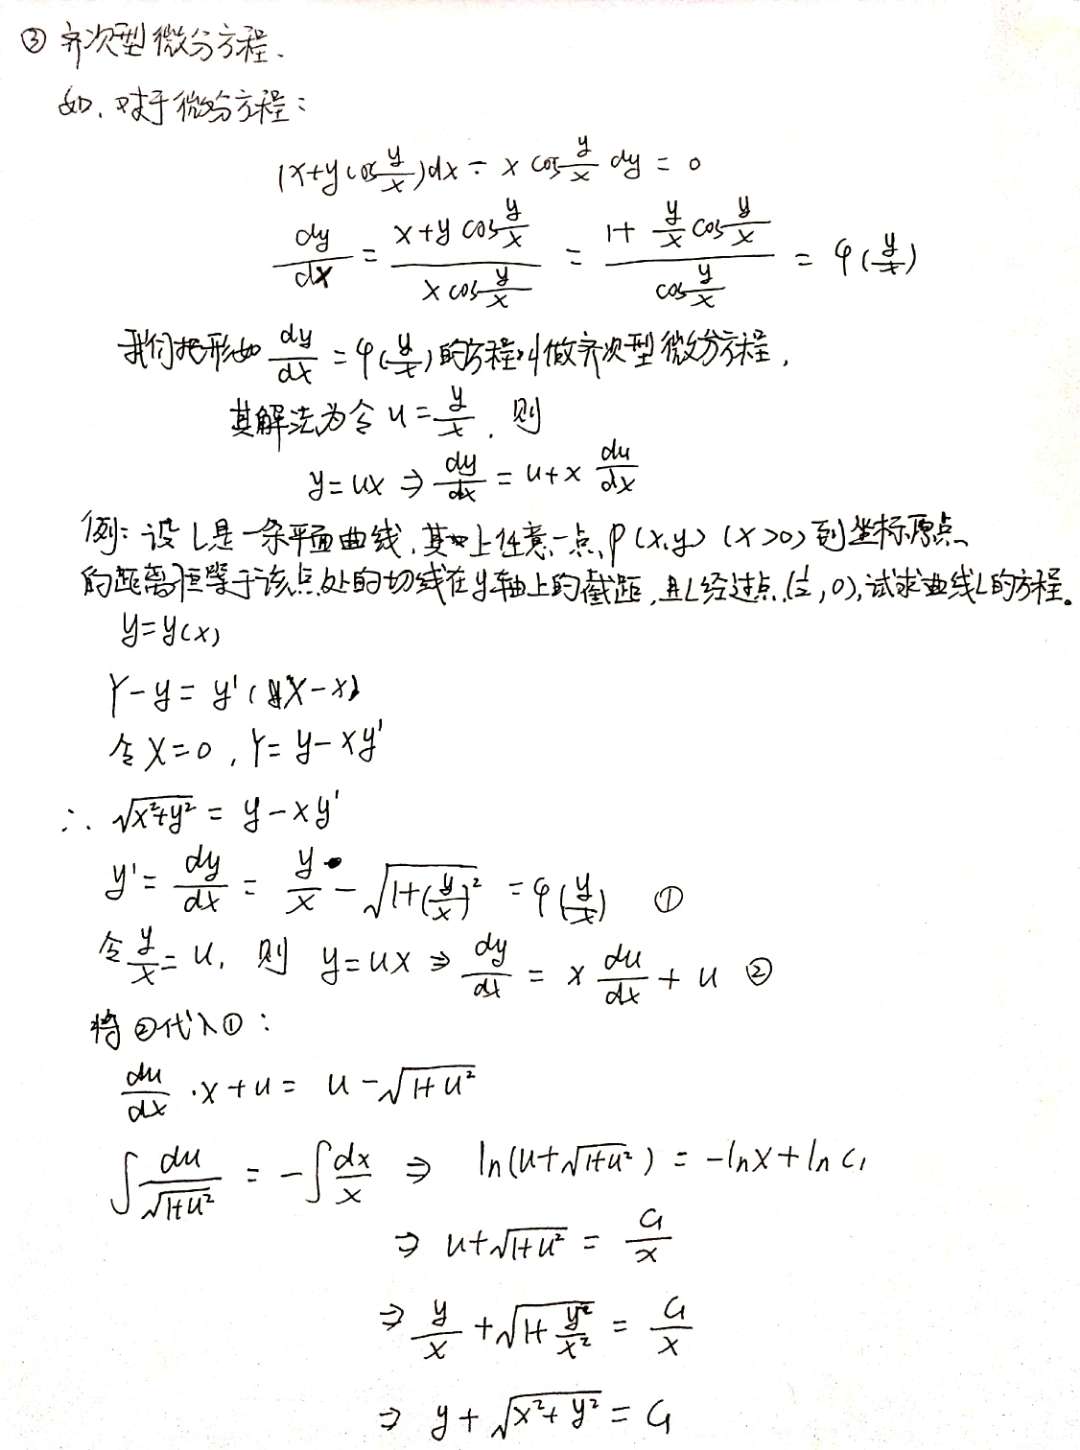 ③ 齐次型微分方程.
如. 对于微分方程:
(x+ycos y/x)dx - x cos y/x dy = 0
dy/dx = (x+y cos y/x)/(x cos y/x) = (1+ y/x cos y/x)/(cos y/x) = φ(y/x)
我们把形如 dy/dx = φ(y/x) 的方程叫做齐次型微分方程,
其解法为令 u = y/x, 则
y=ux ⇒ dy/dx = u+x du/dx
例: 设L是一条平面曲线, 其上任意一点P(x,y) (x>0) 到坐标原点
的距离恒等于该点处的切线在y轴上的截距, 且L经过点(½,0), 试求曲线L的方程。
y=y(x)
Y-y = y'(X-x)
令X=0, Y= y-xy'
∴ √(x²+y²) = y-xy'
y' = dy/dx = y/x - √(1+(y/x)²) = φ(y/x) ①
令 y/x = u, 则 y=ux ⇒ dy/dx = x du/dx + u ②
将②代入①:
du/dx ·x+u = u-√(1+u²)
∫ du/√(1+u²) = -∫ dx/x ⇒ ln(u+√(1+u²)) = -lnx+ln C₁
⇒ u+√(1+u²) = C₁/x
⇒ y/x + √(1+ y²/x²) = C₁/x
⇒ y + √(x²+y²) = C₁